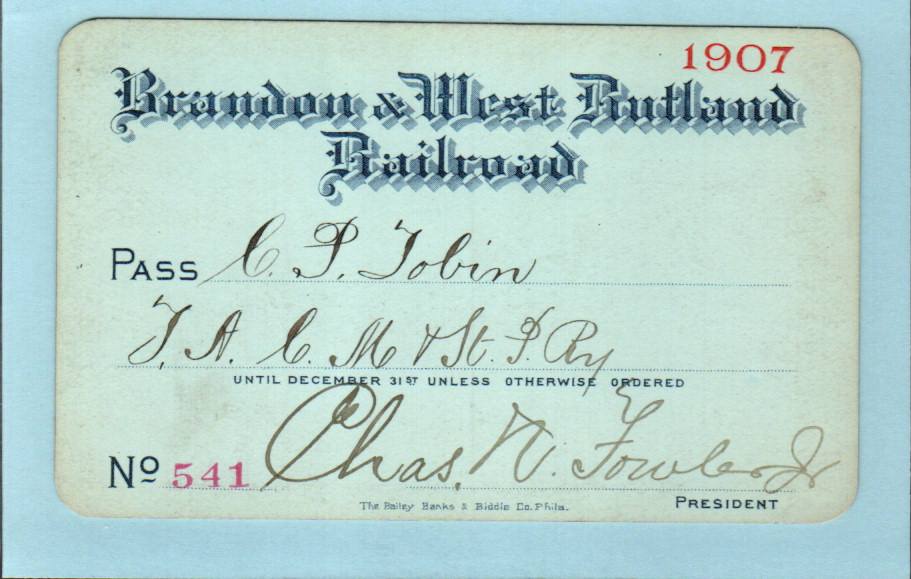 1907
Brandon & West Rutland
Railroad
PASS C. P. Tobin
T. A. C. M & St. P. Ry
UNTIL DECEMBER 31ST UNLESS OTHERWISE ORDERED
No 541 Chas. N. Fowler Jr
PRESIDENT
The Bailey Banks & Biddle Co. Phila.